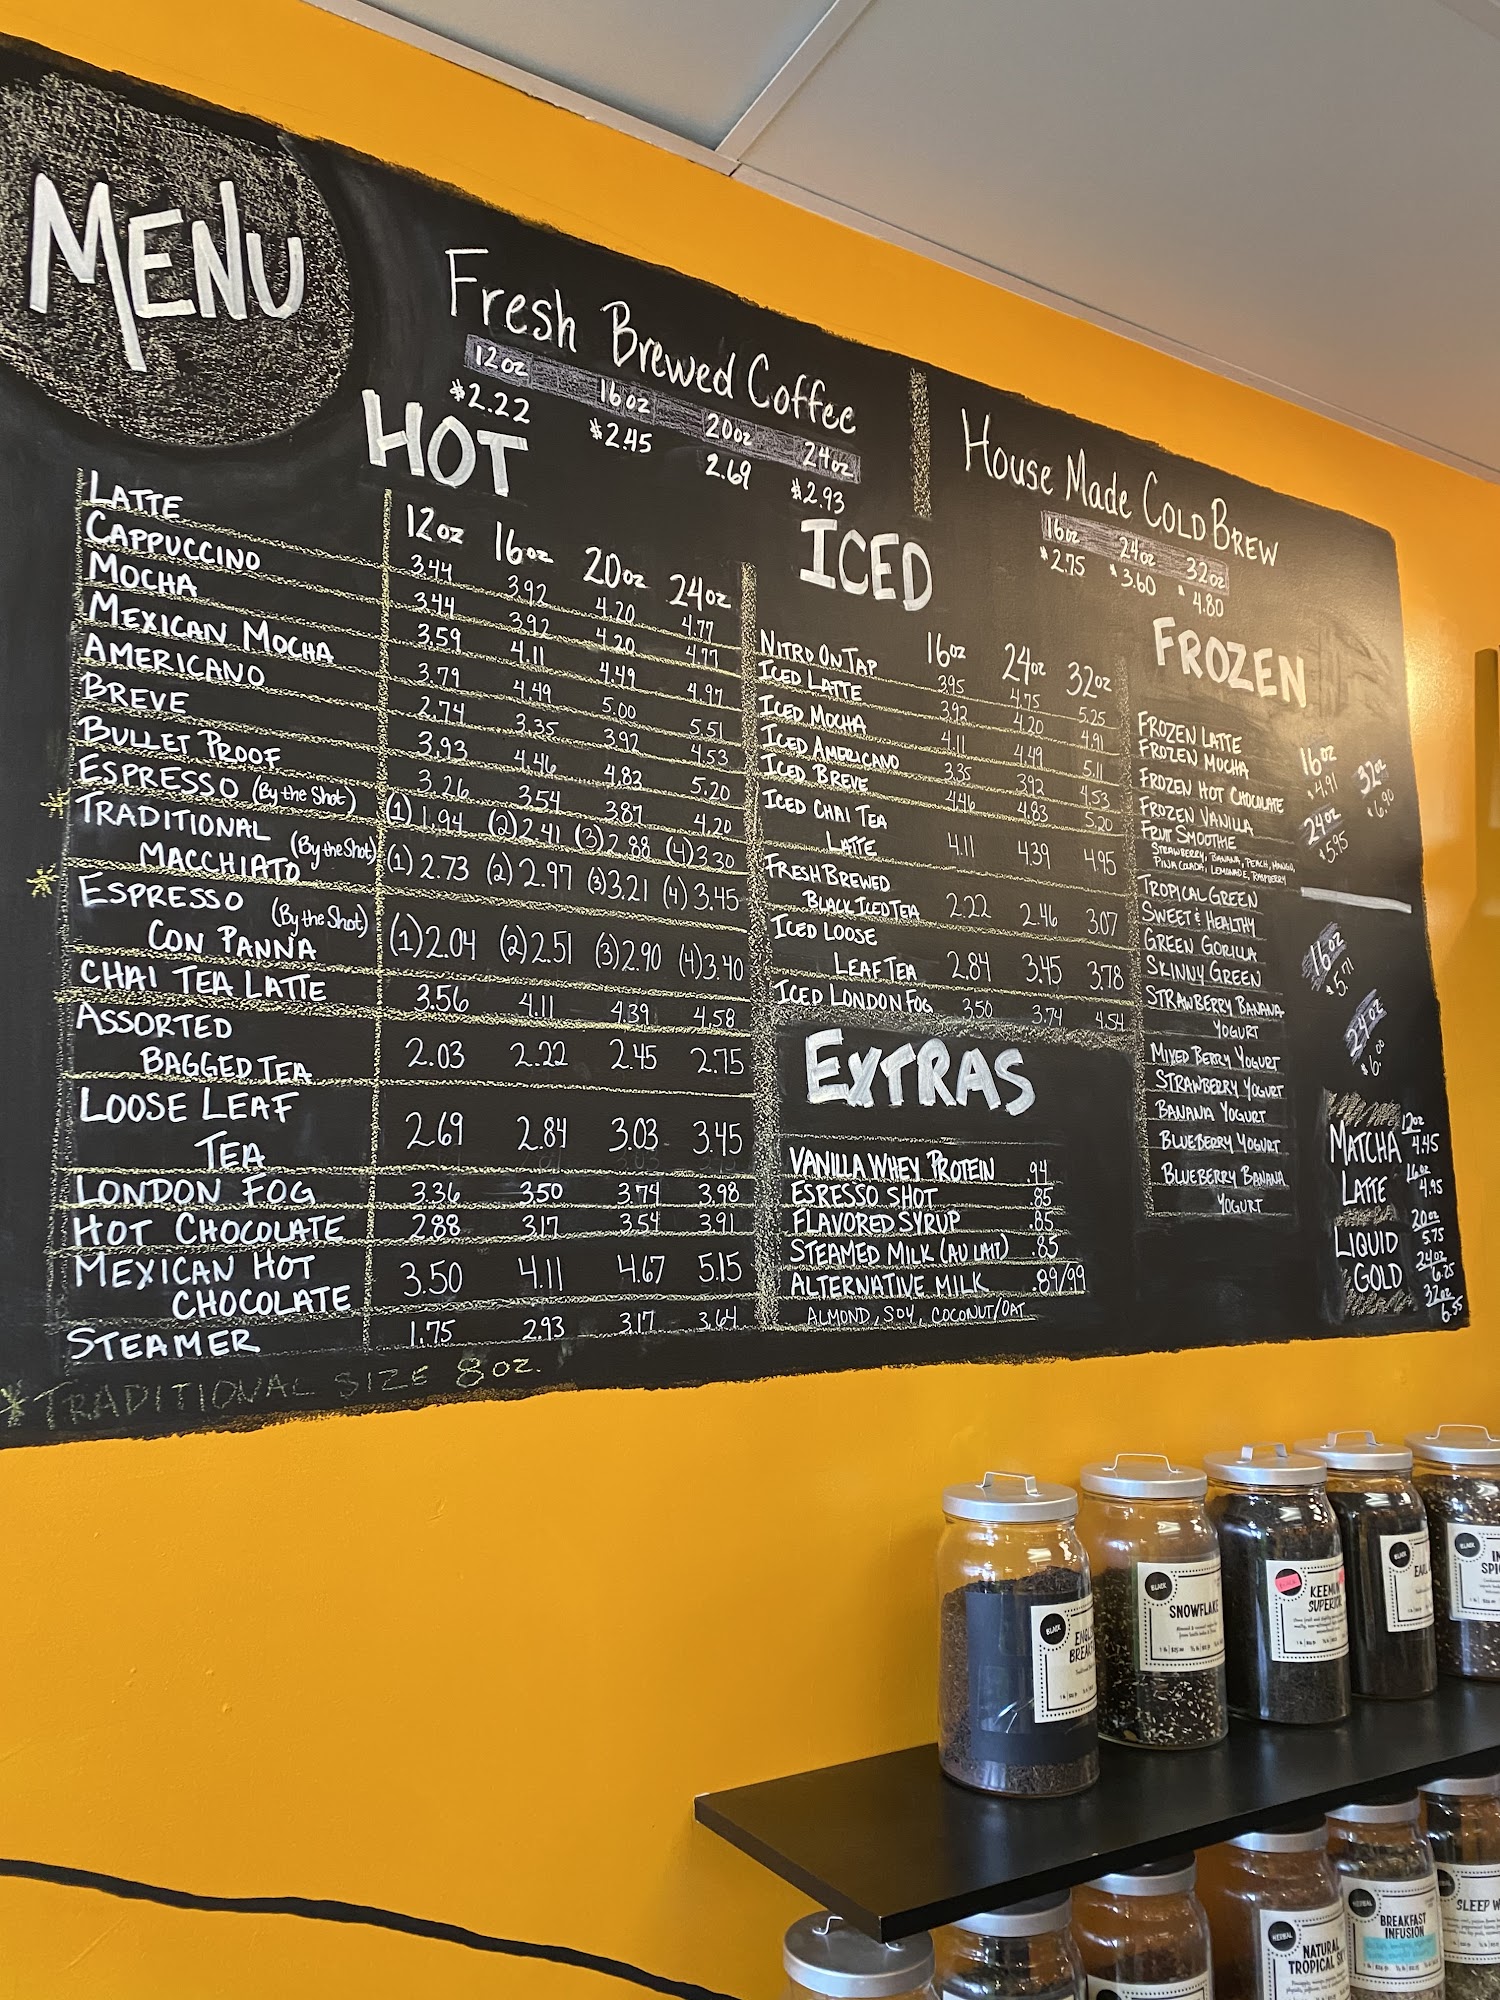 MENU
Fresh Brewed Coffee
12oz 16oz 20oz 24oz
$2.22 $2.45 2.69 $2.93
House Made Cold Brew
16oz 24oz 32oz
$2.75 $3.60 4.80
HOT
12oz 16oz 20oz 24oz
LATTE 3.44 3.92 4.20 4.77
CAPPUCCINO 3.44 3.92 4.20 4.77
MOCHA 3.59 4.11 4.49 4.97
MEXICAN MOCHA 3.79 4.49 5.00 5.51
AMERICANO 2.74 3.35 3.92 4.53
BREVE 3.93 4.46 4.83 5.20
BULLET PROOF 3.26 3.54 3.87 4.20
ESPRESSO (By the Shot) (1) 1.94 (2) 2.41 (3) 2.88 (4) 3.30
TRADITIONAL
MACCHIATO (By the Shot) (1) 2.73 (2) 2.97 (3) 3.21 (4) 3.45
ESPRESSO
CON PANNA (By the Shot) (1) 2.04 (2) 2.51 (3) 2.90 (4) 3.40
CHAI TEA LATTE 3.56 4.11 4.39 4.58
ASSORTED
BAGGED TEA 2.03 2.22 2.45 2.75
LOOSE LEAF
TEA 2.69 2.84 3.03 3.45
LONDON FOG 3.36 3.50 3.74 3.98
HOT CHOCOLATE 2.88 3.17 3.54 3.91
MEXICAN HOT
CHOCOLATE 3.50 4.11 4.67 5.15
STEAMER 1.75 2.93 3.17 3.64
*TRADITIONAL SIZE 8oz.
ICED
16oz 24oz 32oz
NITRO ON TAP 3.95 4.75 5.25
ICED LATTE 3.92 4.20 4.91
ICED MOCHA 4.11 4.49 5.11
ICED AMERICANO 3.35 3.92 4.53
ICED BREVE 4.46 4.83 5.20
ICED CHAI TEA
LATTE 4.11 4.39 4.95
FRESH BREWED
BLACK ICED TEA 2.22 2.46 3.07
ICED LOOSE
LEAF TEA 2.84 3.45 3.78
ICED LONDON FOG 3.50 3.74 4.54
EXTRAS
VANILLA WHEY PROTEIN .94
ESRESSO SHOT .85
FLAVORED SYRUP .85
STEAMED MILK (AU LAIT) .85
ALTERNATIVE MILK .89/99
ALMOND, SOY, COCONUT/OAT
FROZEN
FROZEN LATTE
FROZEN MOCHA
FROZEN HOT CHOCOLATE
FROZEN VANILLA
FRUIT SMOOTHIE
STRAWBERRY, BANANA, PEACH, MANGO,
PINA COLADA, LEMONADE, RASPBERRY
16oz
$4.91
24oz
$5.95
32oz
$6.90
TROPICAL GREEN
SWEET & HEALTHY
GREEN GORILLA
SKINNY GREEN
STRAWBERRY BANANA
YOGURT
MIXED BERRY YOGURT
STRAWBERRY YOGURT
BANANA YOGURT
BLUEBERRY YOGURT
BLUEBERRY BANANA
YOGURT
16oz
$5.71
24oz
$6.00
MATCHA
LATTE
LIQUID
GOLD
12oz
4.45
16oz
4.95
20oz
5.75
24oz
6.25
32oz
6.55
BLACK
BLACK
SNOWFLAKE
KEEMUN
SUPERIOR
BLACK
BLACK
HERBAL
NATURAL
TROPICAL
HERBAL
BREAKFAST
INFUSION
SLEEP